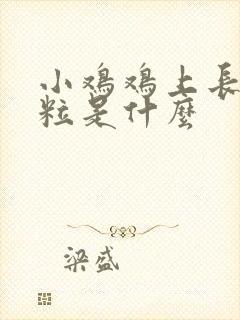 小鸡鸡上長
粒是什麼
梁盛